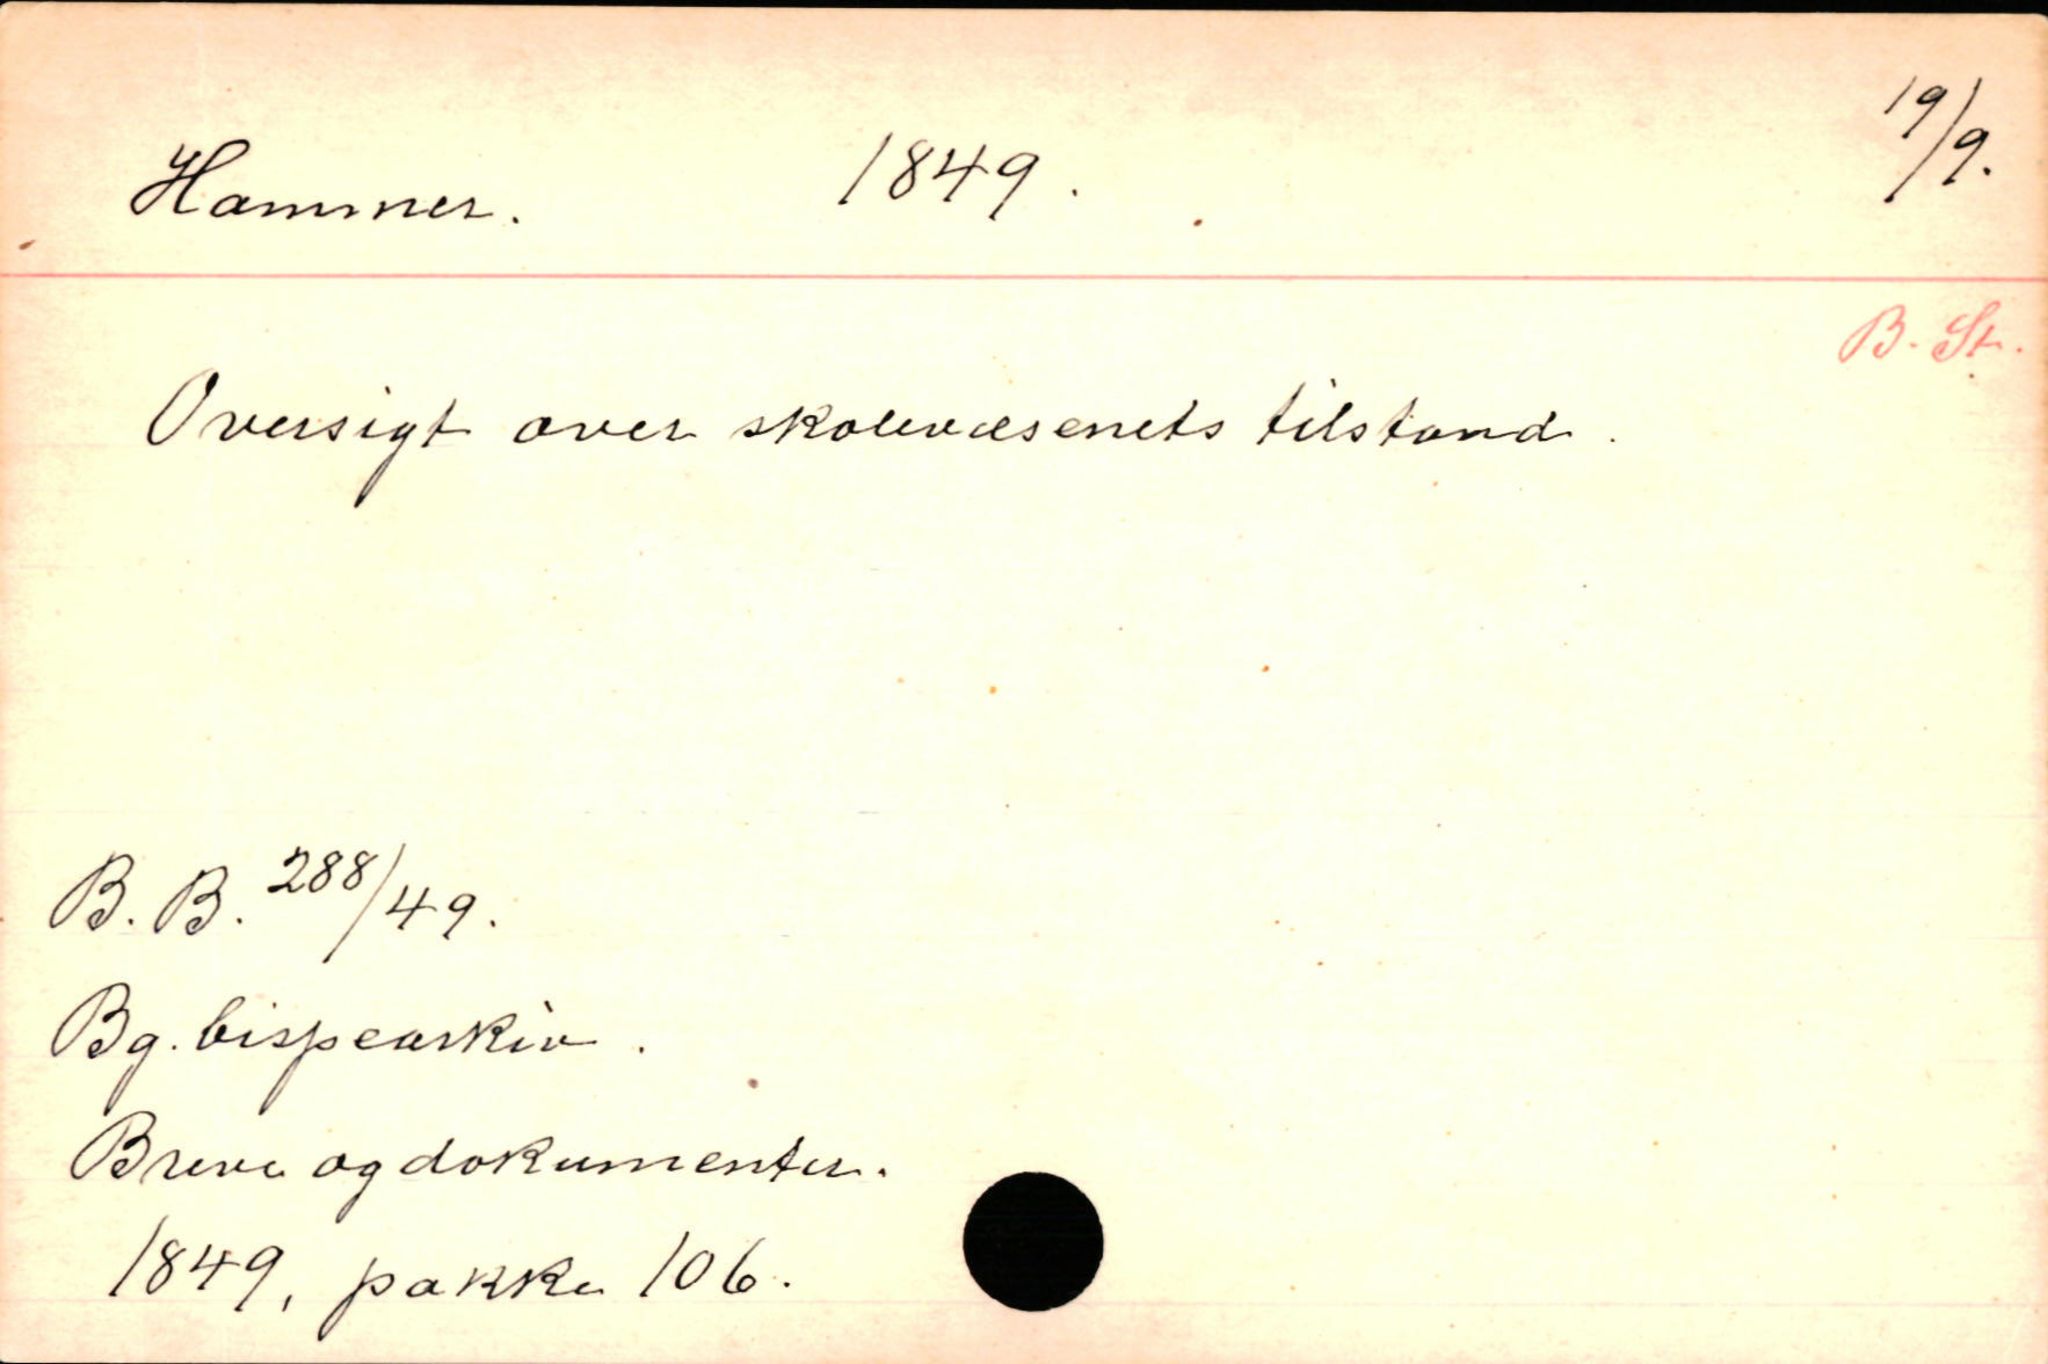 Hammer. 1849. 19/9.
B. St.
Oversigt over skolevæsenets tilstand.
B. B. 288/49.
Bg. bispearkiv.
Breve og dokumenter.
1849, pakke 106.